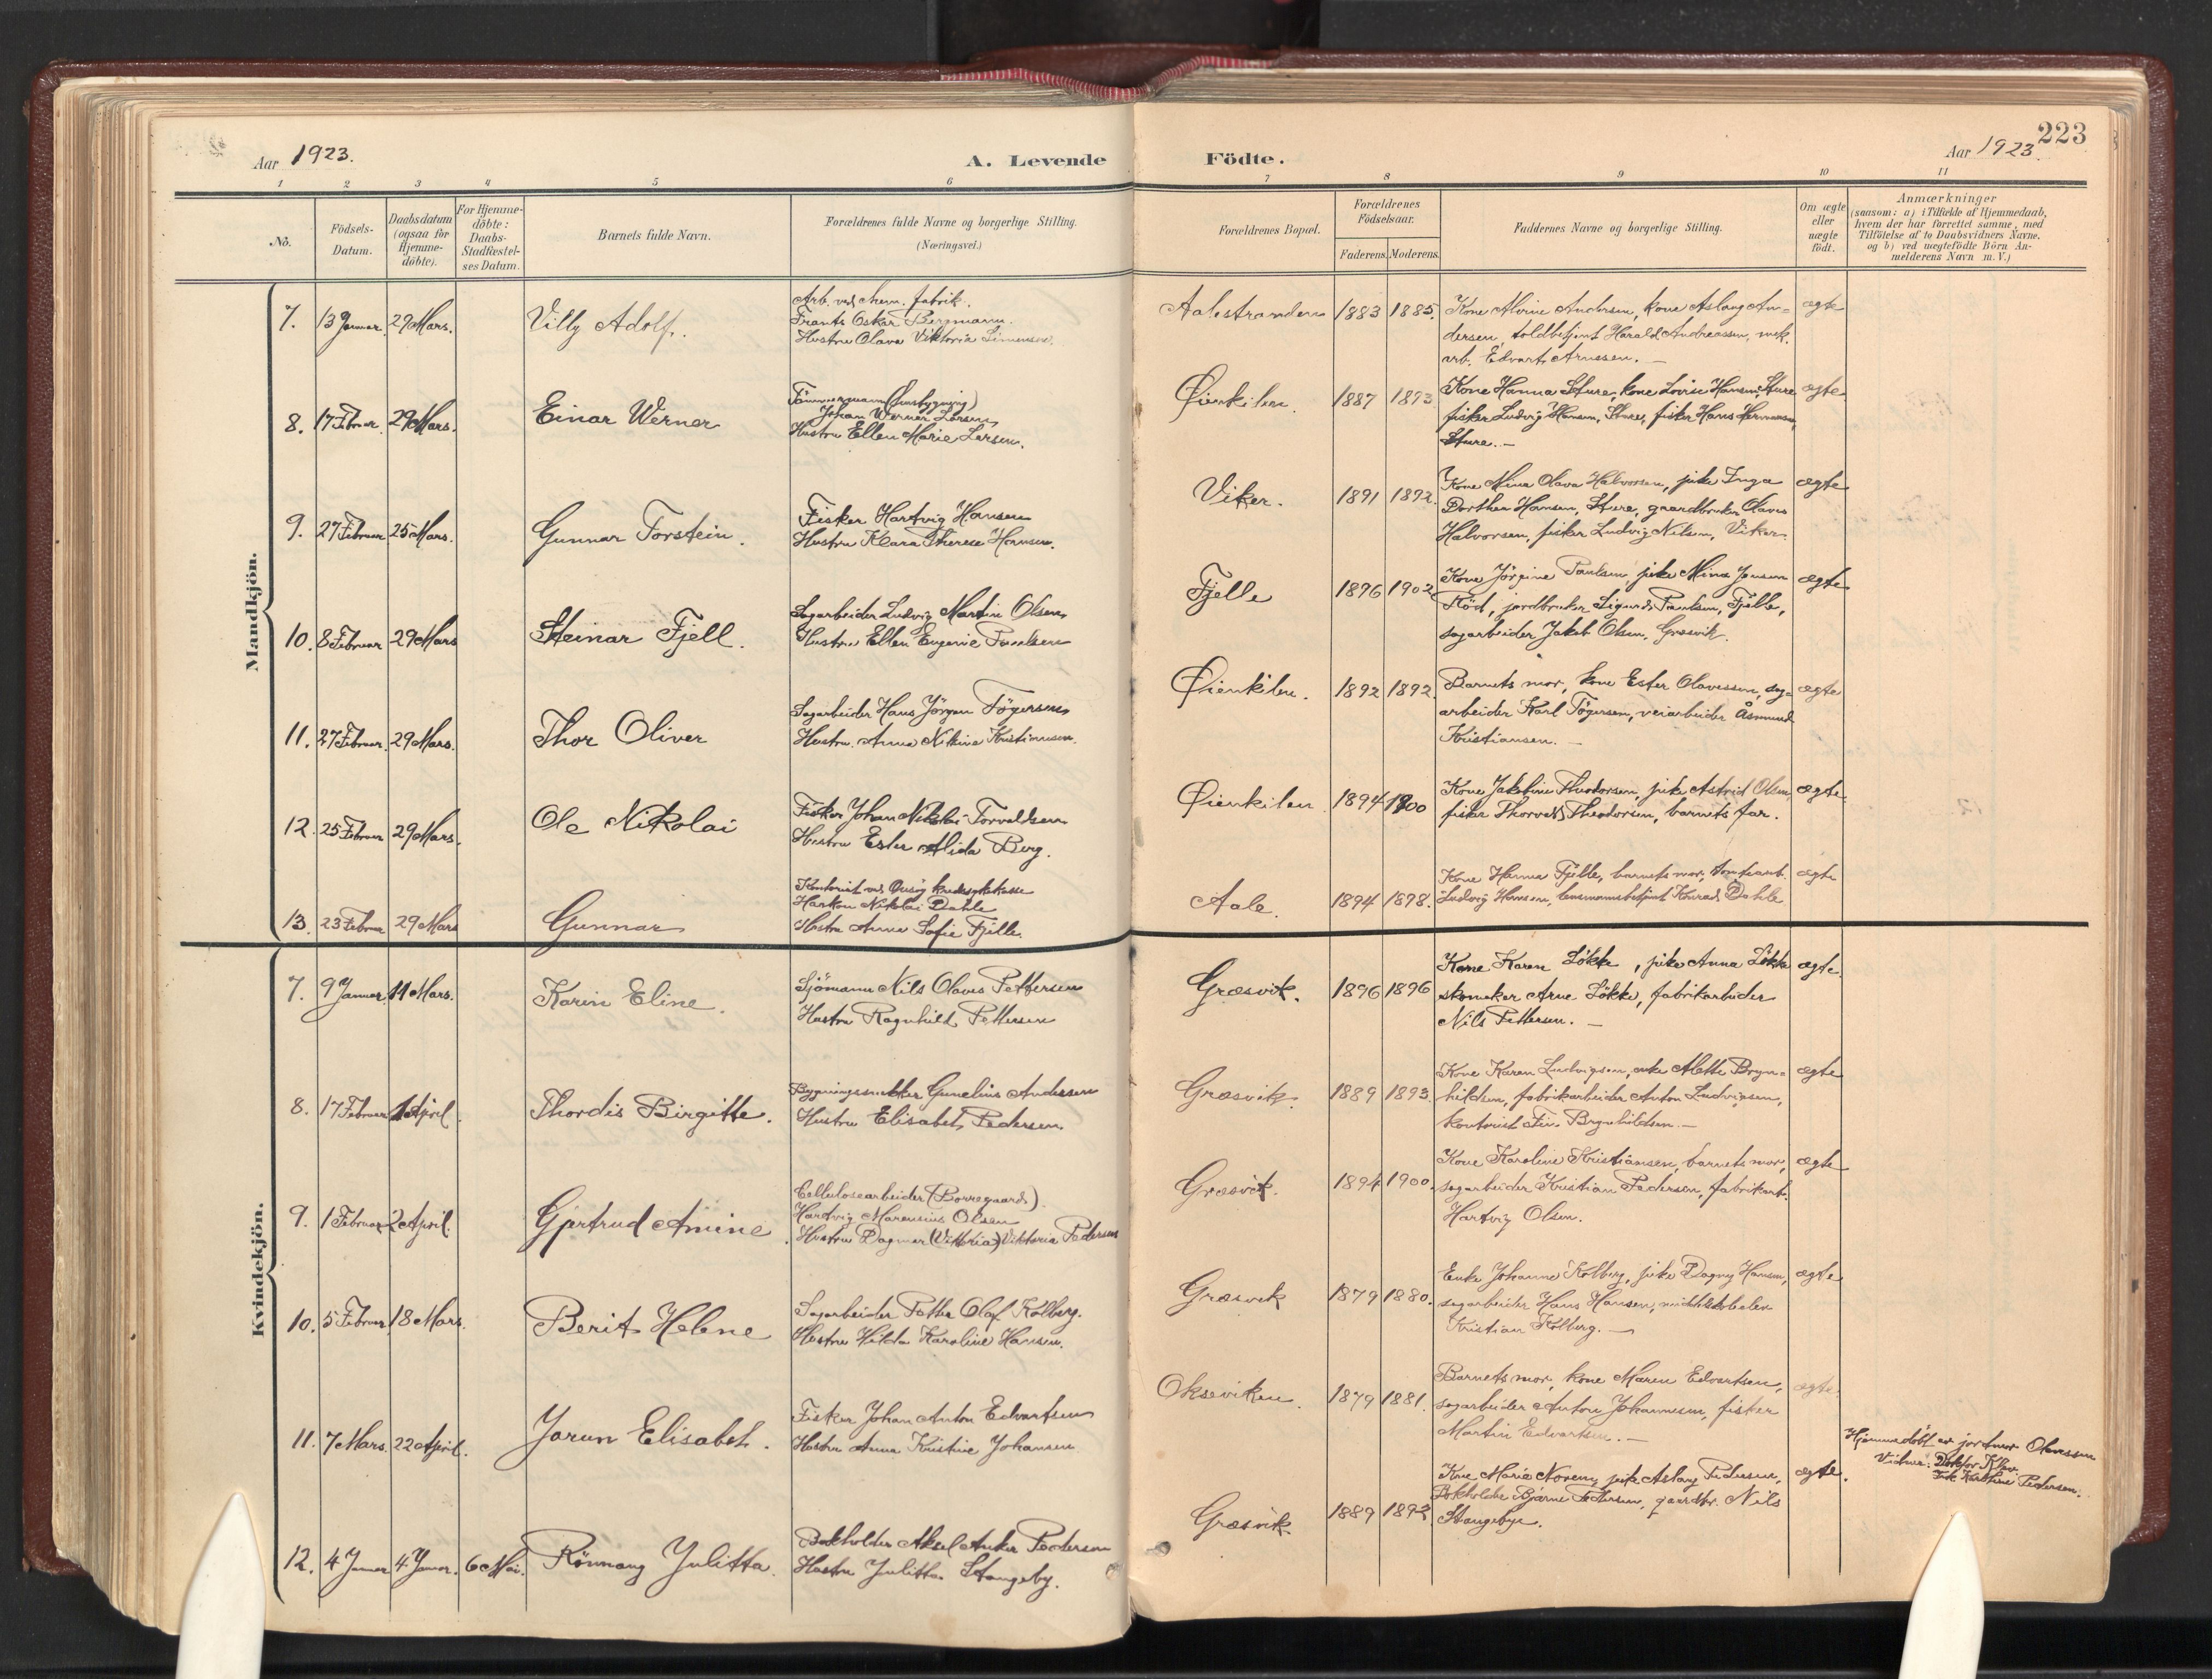 Aar 1923.
A. Levende
Födte.
Aar 1923.
223
1 2 3 4 5 6 7 8 9 10 11
No.
Födsels-
Datum.
Daabsdatum
(ogsaa for
Hjemme-
döbte).
For Hjemme-
döbte:
Daabs-
Stadfæstel-
ses Datum.
Barnets fulde Navn.
Forældrenes fulde Navne og borgerlige Stilling.
(Næringsvei.)
Forældrenes Bopæl.
Forældrenes
Födselsaar.
Faderens. Moderens.
Faddernes Navne og borgerlige Stilling.
Om ægte
eller
uægte
födt.
Anmærkninger
(saasom: a) i Tilfælde af Hjemmedaab,
hvem der har forrettet samme, med
Tilföielse af to Daabsvidners Navne.
og b) ved uægtefödte Börn An-
melderens Navn m. V.)
Mandkjön.
7. 13 Januar. 29 Mars. Villy Adolf.
Arb. ved kem. fabrik.
Frants Oskar Bergmann.
Hustru Olava Viktoria Simensen.
Aalestranden 1883 1885.
Kone Alvine Andersen, kone Aslaug An-
dersen, toldbetjent Harald Andreassen, mek.
arb. Edvart Arnesen. —
ægte
8. 17 Februar. 29 Mars. Einar Werner
Tömmermann (husbygning)
Johan Werner Larsen
Hustru Ellen Marie Larsen.
Øienkilen. 1887 1893
Kone Hanna Sture, kone Lovise Hansen, Sture
fisker Ludvig Hansen, Sture, fisker Hans Hermansen,
Sture. —
ægte
9. 27 Februar 25 Mars. Gunnar Torstein.
Fisker Hartvig Hansen
Hustru Klara Therese Hansen.
Viker. 1891 1892.
Kone Mina Olava Halvorsen, pike Inga
Dorthea Hansen, Sture, gaardbruker Olaves
Halvorsen, fisker Ludvig Nilsen, Viker.
ægte
10. 8 Februar 29 Mars Steinar Fjell.
Sagarbeider Ludvig Martin Olsen,
Hustru Ellen Eugenie Paulsen
Fjelle 1896 1902
Kone Jörgine Paulsen, pike Mina Jensen
Röd, jordbruker Sigurd Paulsen, Fjelle,
sagarbeider Jakob Olsen, Græsvik.
ægte
11. 27 Februar. 29 Mars. Thor Oliver
Sagarbeider Hans Jörgen Tögersen,
Hustru Anna Nikine Kristiansen.
Øienkilen. 1892 1892.
Barnets mor, kone Ester Olavessen, sag-
arbeider Karl Tögersen, veiarbeider Åsmund
Kristiansen. —
ægte
12. 25 Februar 29 Mars. Ole Nikolai
Fisker Johan Nikolai Torvaldsen
Hustru Ester Alida Berg.
Øienkilen. 1894 1900
Kone Jakobine Theodorsen, pike Astrid Olsen,
fisker Thorvald Theodorsen, barnets far.
ægte
13. 23 Februar 29 Mars Gunnar
Kontorist ved Onsøy kredssykekasse
Haakon Nikolai Dahle
Hustru Anna Sofie Fjelle.
Aale. 1894 1898.
Kone Hanna Fjelle, barnets mor, tomtearb.
Ludvig Hansen, lensmannsbetjent Konrad Dahle
ægte
Kvindekjön.
7. 9 Januar 11 Mars. Karin Eline.
Sjömann Nils Olaves Pettersen
Hustru Ragnhild Pettersen
Græsvik. 1896 1896
Kone Karen Lökke, pike Anna Lökke
skomaker Arne Lökke, fabrikarbeider
Nils Pettersen. —
ægte
8. 17 Februar 1 April. Thordis Birgitte.
Bygningssnekker Gunelius Andersen
Hustru Elisabet Pedersen
Græsvik. 1889 1893.
Kone Karen Ludvigsen, enke Mette Bryn-
hildsen, fabrikarbeider Anton Ludvigsen,
kontorist Finn Brynhildsen. —
ægte
9. 1 Februar 2 April. Gjertrud Amine
Cellulosearbeider (Borregaard)
Hartvig Marensius Olsen
Hustru Dagmar (Viktoria) Viktoria Pedersen
Græsvik. 1894 1900.
Kone Karoline Kristiansen, barnets mor,
sagarbeider Kristian Pedersen, fabrikarb.
Hartvig Olsen.
ægte
10. 5 Februar 18 Mars. Berit Helene
Sagarbeider Petter Olaf Kolberg.
Hustru Hilda Karoline Hansen.
Græsvik 1879 1880.
Enke Johanne Kolberg, pike Dagny Hansen,
sagarbeider Hans Hansen,
Kristian Kolberg. —
ægte
11. 7 Mars. 22 April. Jorun Elisabet.
Fisker Johan Anton Edvartsen
Hustru Anna Kristine Johansen
Okseviken. 1879 1881.
Barnets mor, kone Maren Edvartsen,
sagarbeider Anton Johannesen, fisker
Martin Edvartsen. —
ægte.
12. 4 Januar 4 Januar. 6 Mai. Rönnaug Julitta.
Bokholder Aksel Anker Pedersen
Hustru Julitta Stangeby.
Græsvik. 1889 1893
Kone Marie Noreng, pike Aslaug Pedersen,
Bokholder Bjarne Pettersen, gaardbr. Nils
Stangebye.
ægte.
Hjemmedöbt av jordmor Olavessen
Vidner: Doktor
Frk Kathine Pedersen.